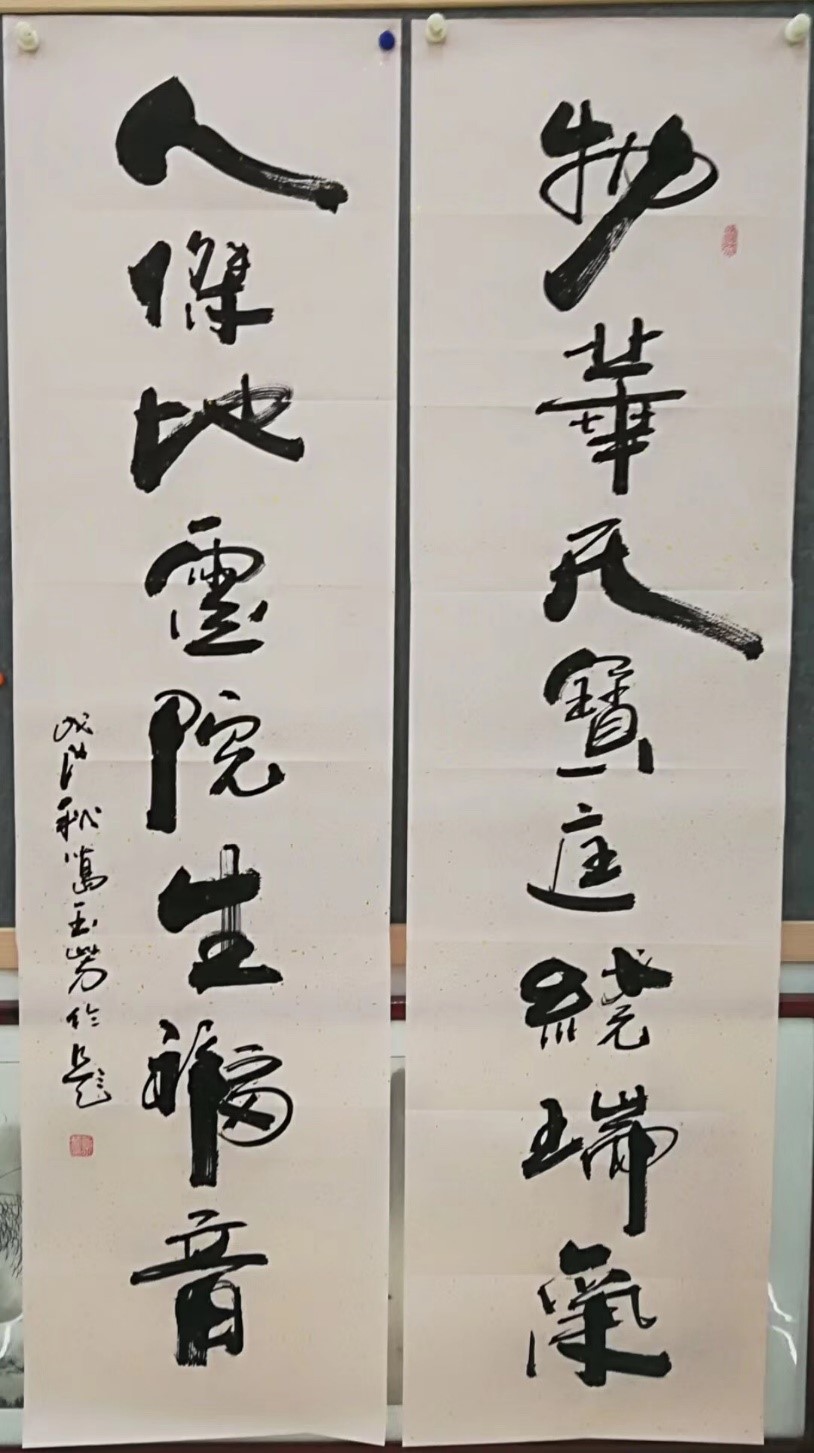 物華天寶庭繞瑞氣
人傑地靈院生福音
戊戌秋萬玉出題